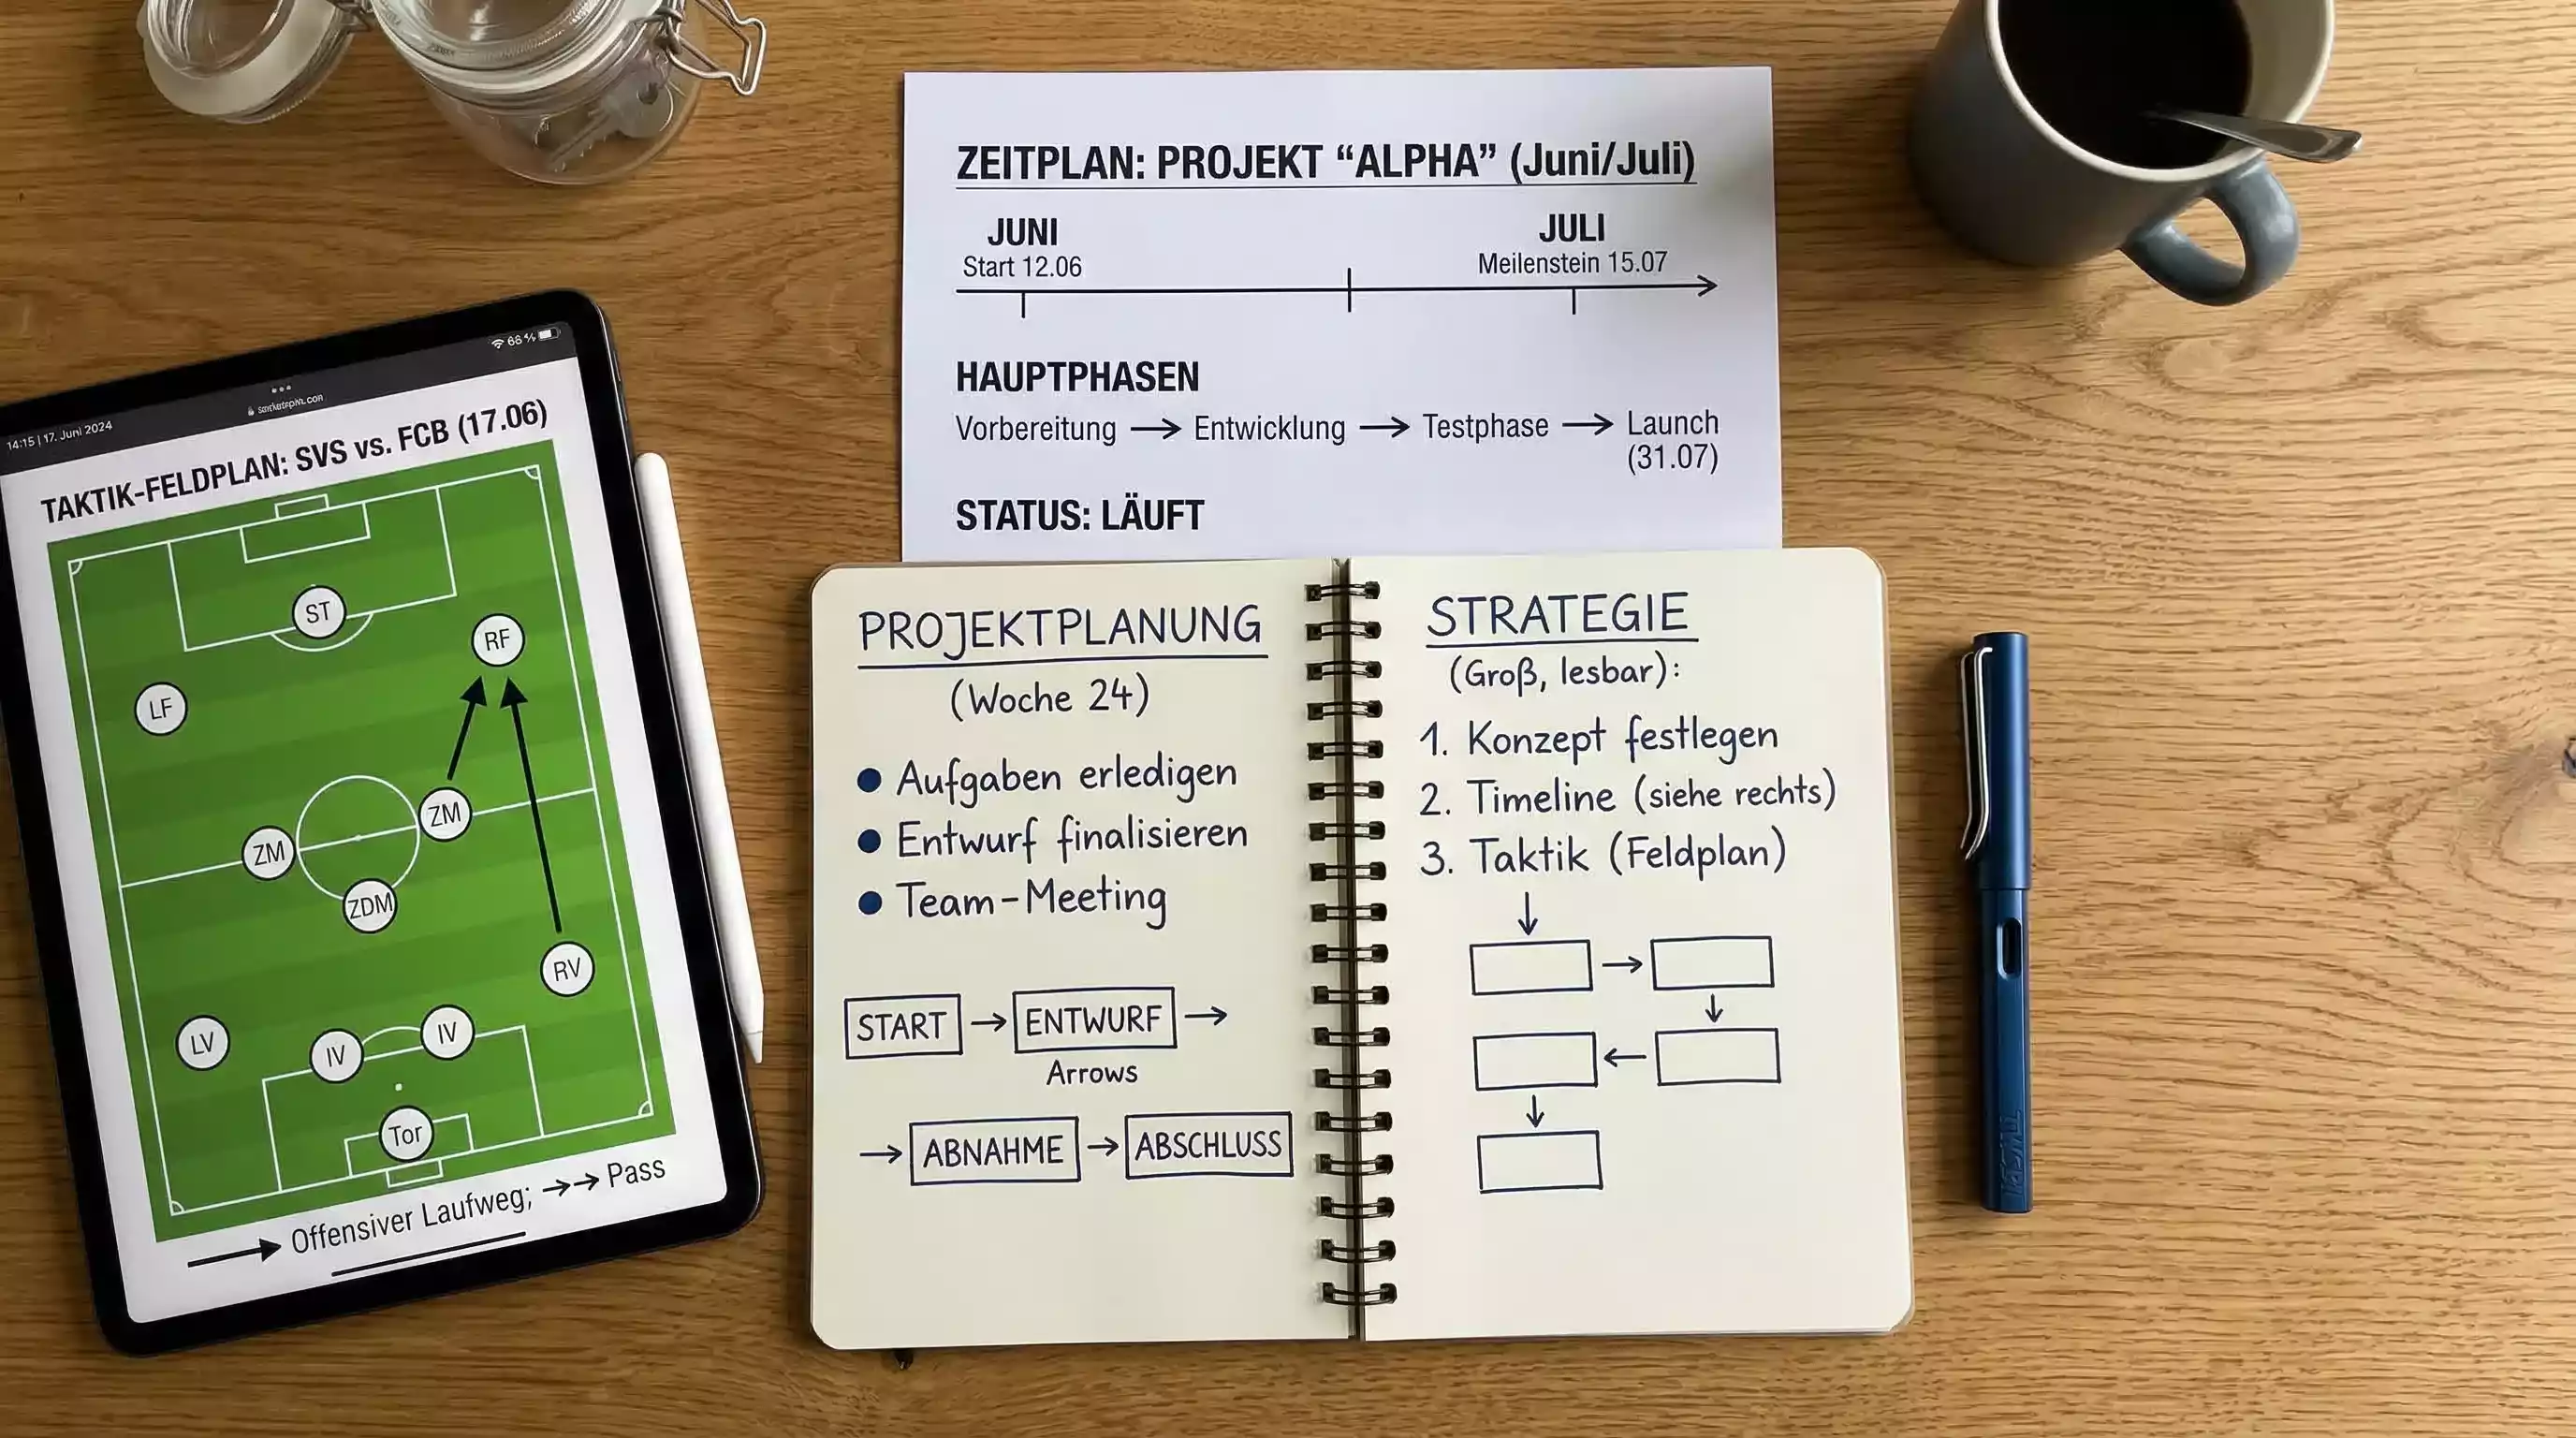 14:15 | 17. Juni 2024
66 %
TAKTIK-FELDPLAN: SVS vs. FCB (17.06)
ST
RF
LF
ZM
ZM
ZDM
RV
LV
IV
IV
Tor
Offensiver Laufweg; →→ Pass
ZEITPLAN: PROJEKT “ALPHA” (Juni/Juli)
JUNI
Start 12.06
JULI
Meilenstein 15.07
HAUPTPHASEN
Vorbereitung → Entwicklung → Testphase → Launch
(31.07)
STATUS: LÄUFT
PROJEKTPLANUNG
(Woche 24)
● Aufgaben erledigen
● Entwurf finalisieren
● Team-Meeting
START → ENTWURF →
Arrows
→ ABNAHME → ABSCHLUSS
STRATEGIE
(Groß, lesbar):
1. Konzept festlegen
2. Timeline (siehe rechts)
3. Taktik (Feldplan)